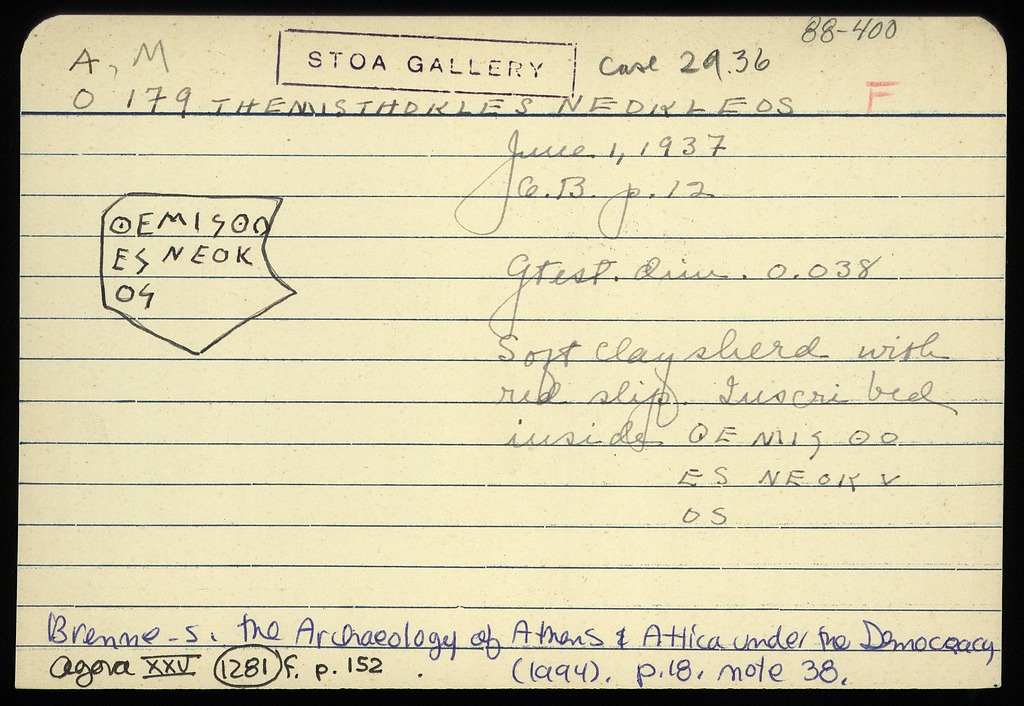 88-400
A, M STOA GALLERY Case 29.36
O 179 THEMISTHOKLES NEOKLEOS F
June 1, 1937
G.B. p. 12
ΘEMISΘO
ES NEOK
OS
Gtest. dim. 0.038
Soft clay sherd with
red slip. Inscribed
inside ΘEMISΘO
ES NEOK V
OS
Brenne-S. the Archaeology of Athens & Attica under the Democracy
(1994). p.18, note 38.
Agora XXV 1281 f. p. 152.